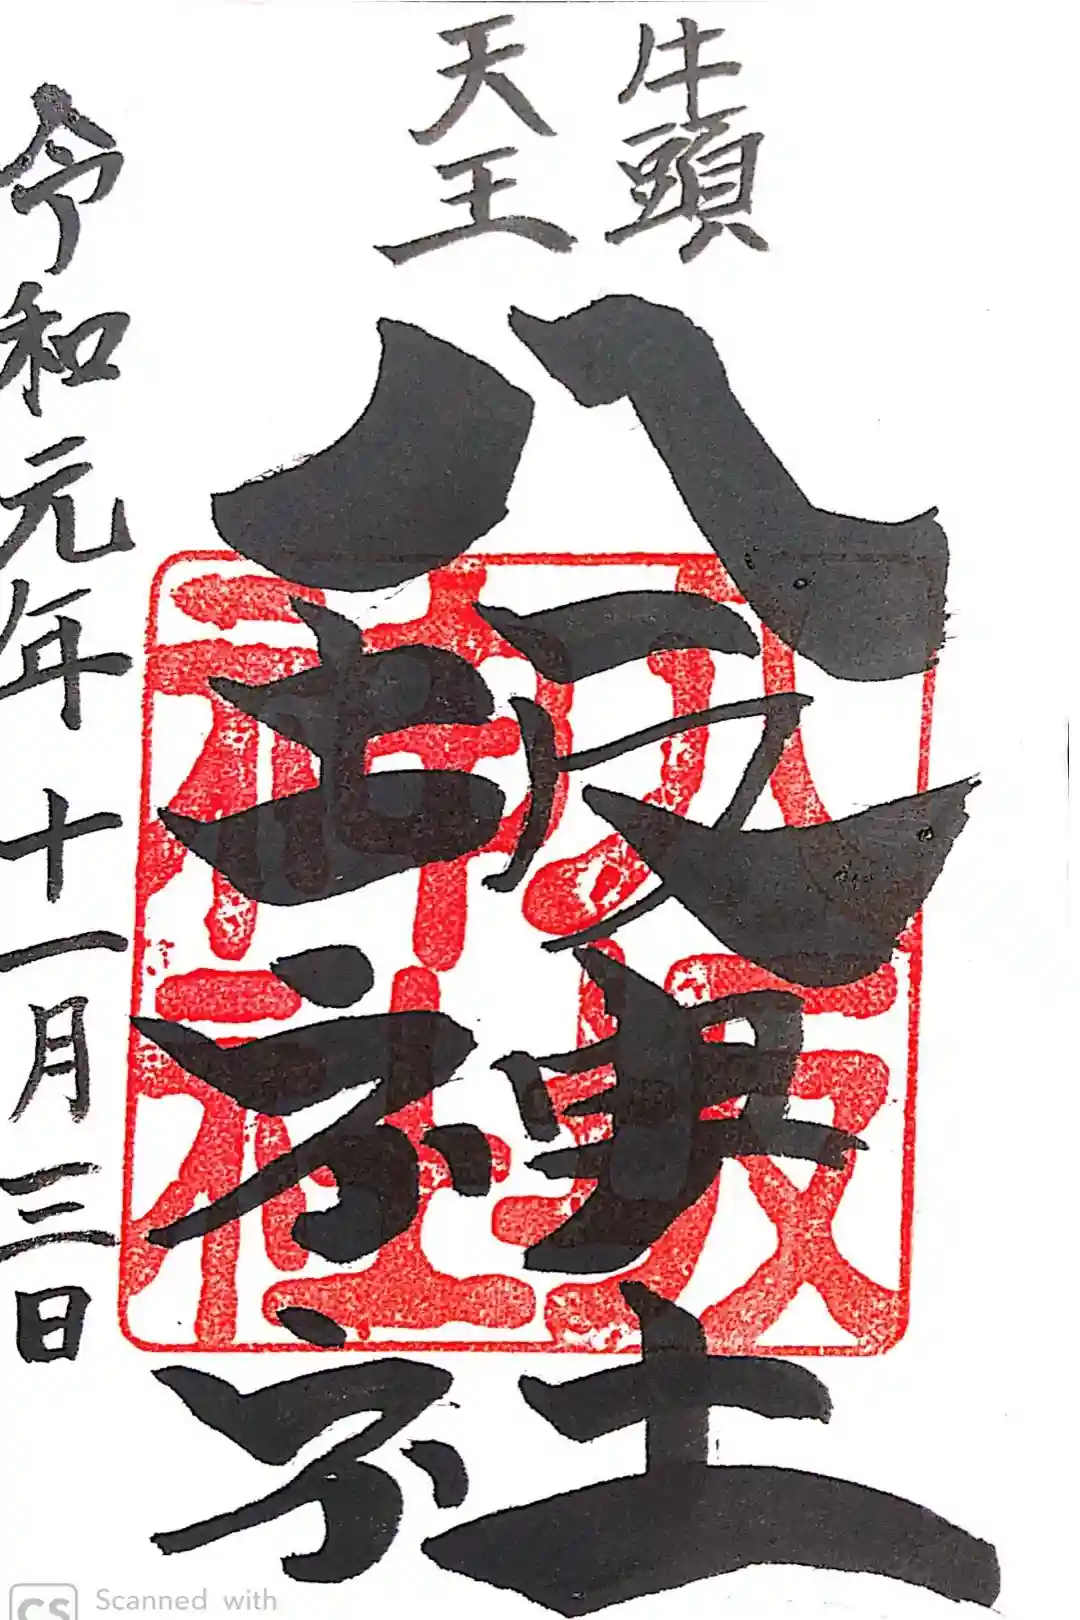 牛頭
天王
八坂神社
八坂神社
令和元年十一月三日
Scanned with
CS